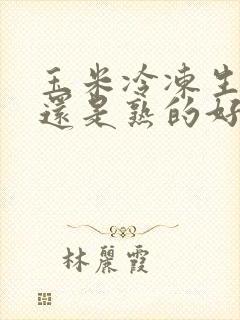 玉米冷凍生
還是熟的好
林麗霞